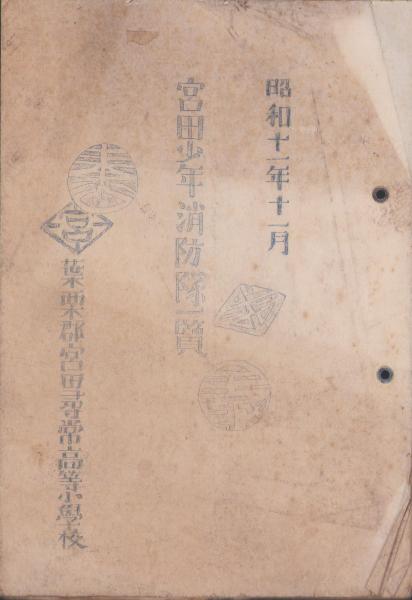 昭和十一年十一月
宮田少年消防隊一覧
葉栗郡宮田尋常高等小學校